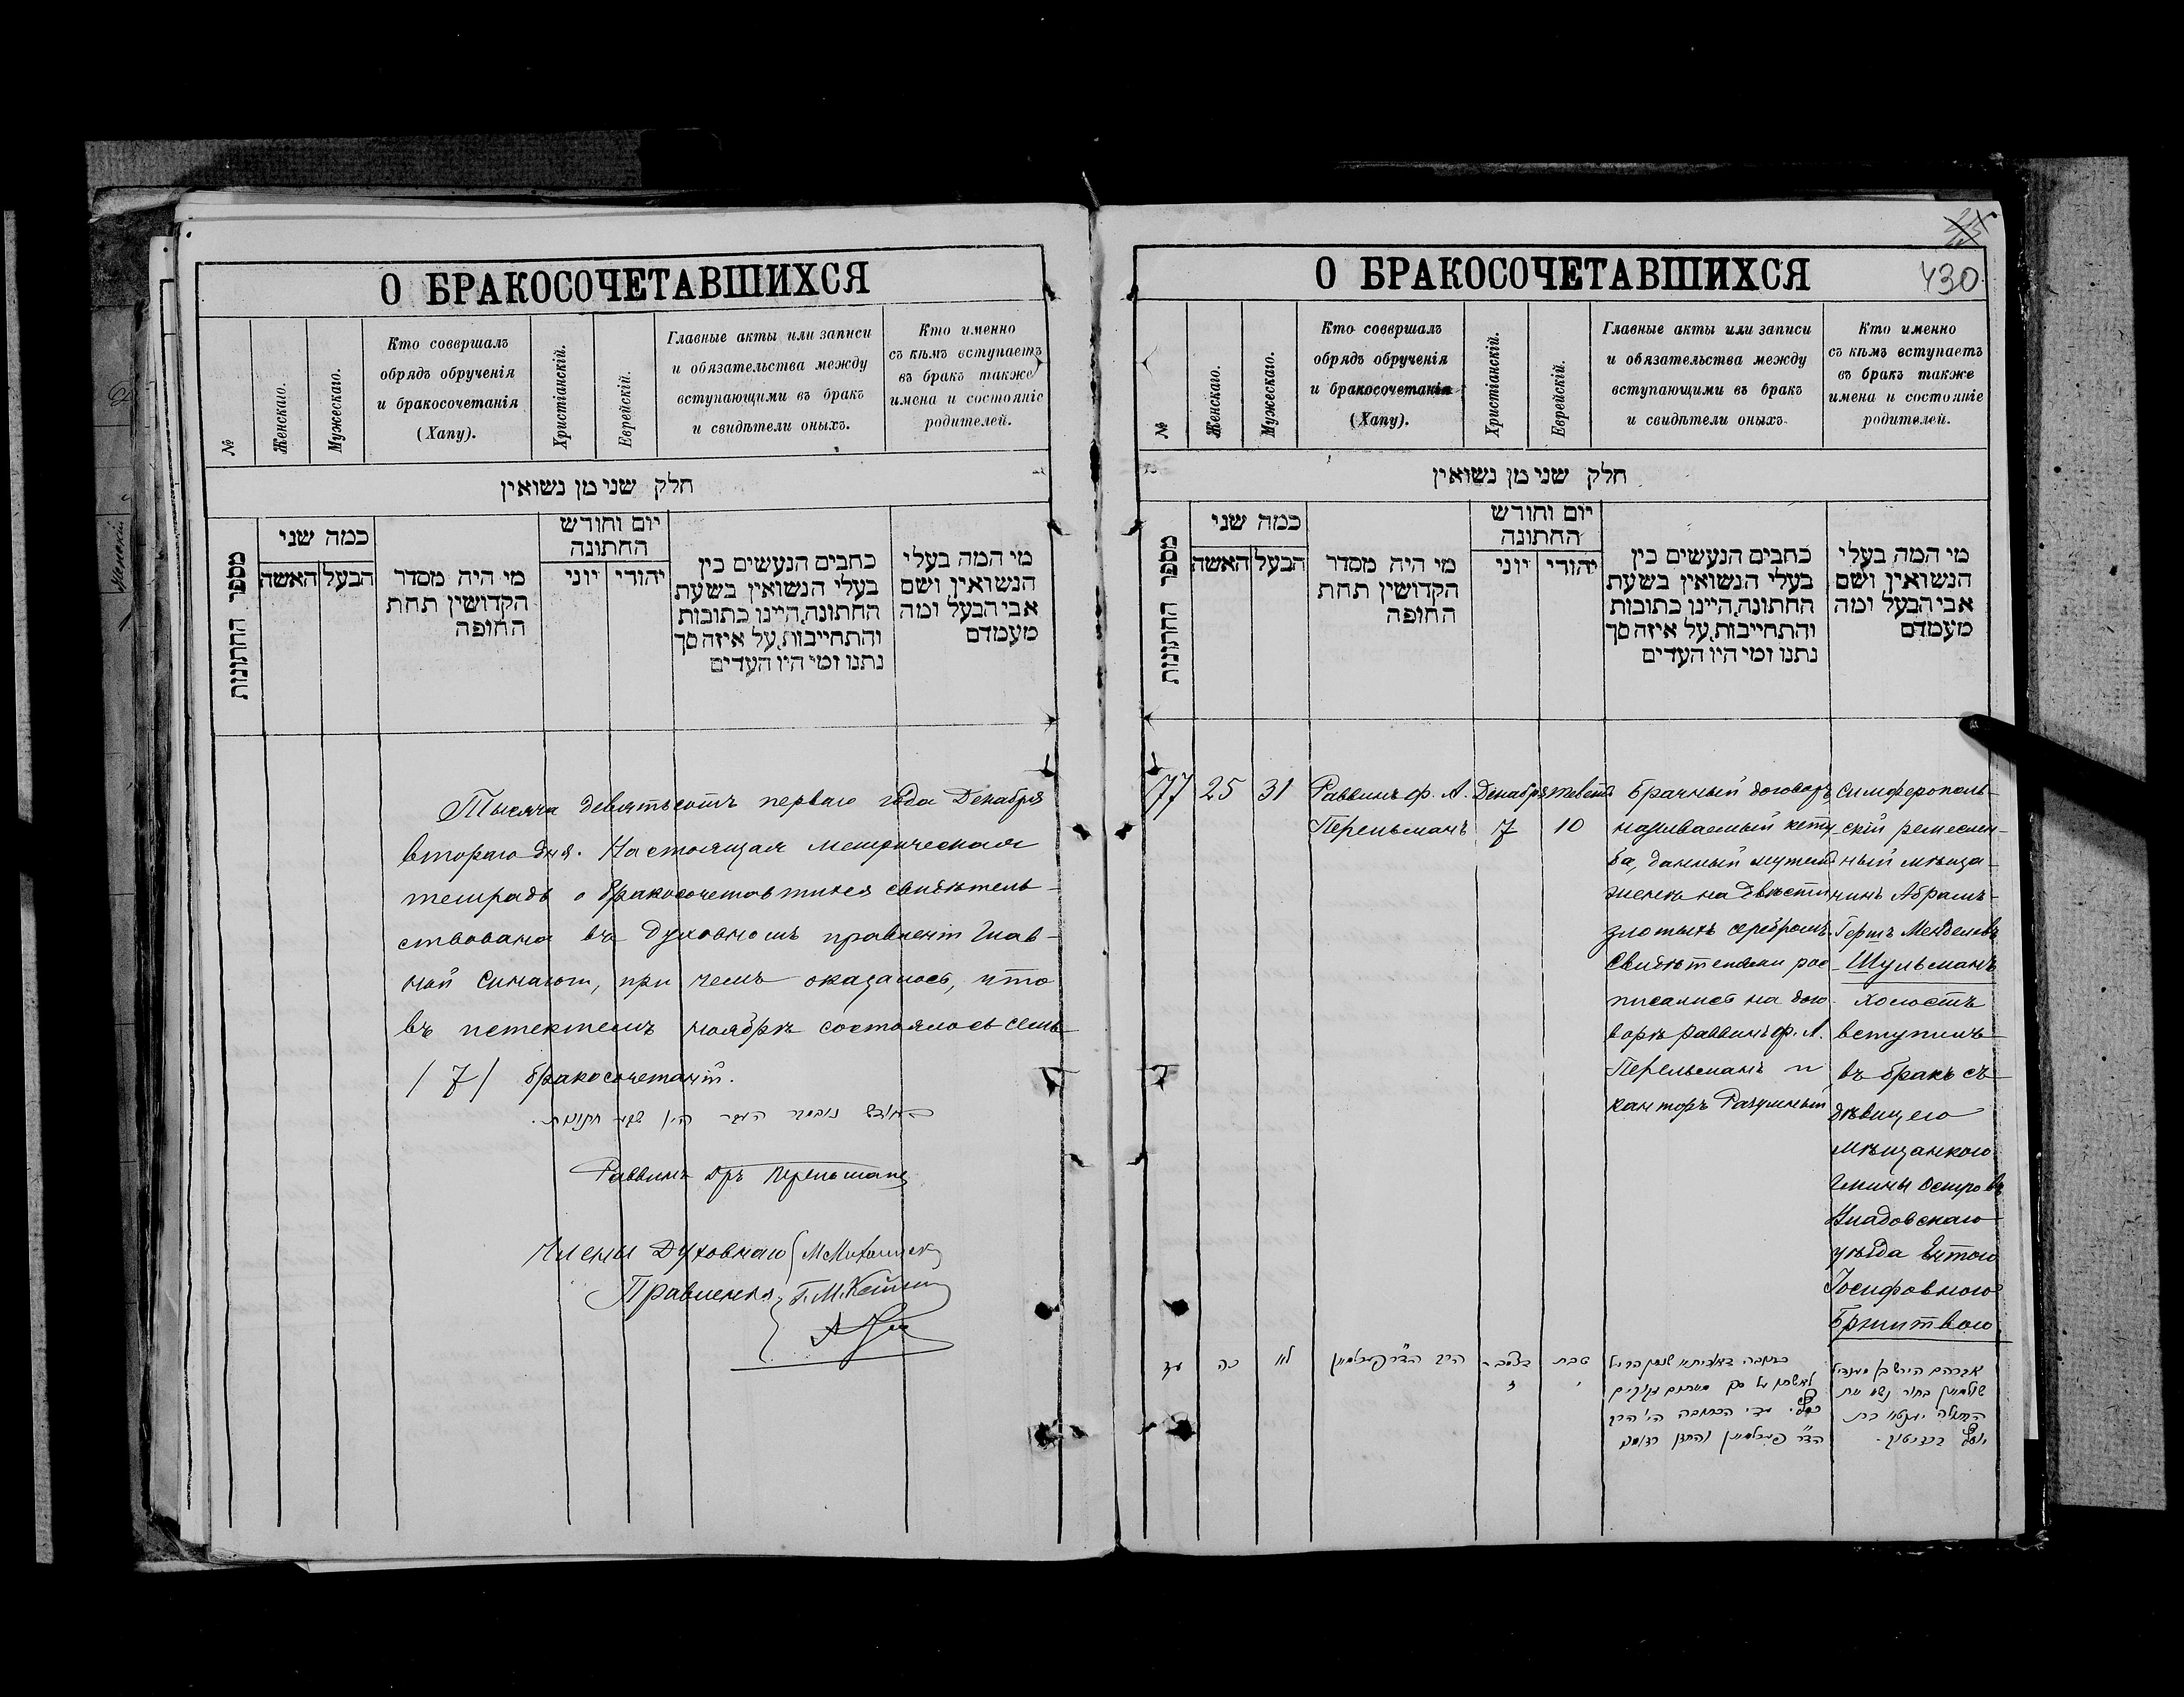 О БРАКОСОЧЕТАВШИХСЯ
№
Женскаго.
Мужескаго.
Кто совершалъ
обрядъ обрученія
и бракосочетанія
(Хапу).
Христіанскій.
Еврейскій.
Главные акты или записи
и обязательства между
вступающими въ бракъ
и свидѣтели оныхъ.
Кто именно
съ кѣмъ вступаетъ
въ бракъ также
имена и состояніе
родителей.
חלק שני מן נשואין
מספר החתונות
כמה שני
האשה
הבעל
מי היה מסדר
הקדושין תחת
החופה
יום וחודש
החתונה
יוני
יהודי
כתבים הנעשים בין
בעלי הנשואין בשעת
החתונה, היינו כתובות
והתחייבות, על איזה סך
נתנו ומי היו העדים
מי המה בעלי
הנשואין ושם
אבי הבעל ומה
מעמדם
Тысяча девятьсотъ перваго года Декабря
втораго дня. Настоящая метрическая
тетрадь о бракосочетавшихся свидѣтель-
ствована въ Духовномъ правленіи Глав-
ной Синагоги, при чемъ оказалось, что
въ истекшемъ ноябрѣ состоялось семь
/7/ бракосочетаній.
בחודש נובמבר העבר היו שבע חתונות.
Раввинъ Дръ Перельманъ
Члены Духовнаго
Правленія
О БРАКОСОЧЕТАВШИХСЯ
430
№
Женскаго.
Мужескаго.
Кто совершалъ
обрядъ обрученія
и бракосочетанія
(Хапу).
Христіанскій.
Еврейскій.
Главные акты или записи
и обязательства между
вступающими въ бракъ
и свидѣтели оныхъ.
Кто именно
съ кѣмъ вступаетъ
въ бракъ также
имена и состояніе
родителей.
חלק שני מן נשואין
מספר החתונות
כמה שני
האשה
הבעל
מי היה מסדר
הקדושין תחת
החופה
יום וחודש
החתונה
יוני
יהודי
כתבים הנעשים בין
בעלי הנשואין בשעת
החתונה, היינו כתובות
והתחייבות, על איזה סך
נתנו ומי היו העדים
מי המה בעלי
הנשואין ושם
אבי הבעל ומה
מעמדם
77
25
31
Раввинъ ф. А.
Перельманъ
Декабря
7
тевета
10
брачный договоръ
называемый кету
ба, данный мужемъ
женѣ на двѣсти
злотыхъ серебромъ.
Свидѣтелями рос
писались на дого
ворѣ раввинъ ф. А.
Перельманъ и
канторъ Разумный
Симферополь-
скій ремеслен-
ный мѣща-
нинъ Абрамъ-
Гершъ Менделевъ
Шульманъ
холостъ
вступилъ
въ бракъ съ
дѣвицею
мѣщанкою
Гмины Островъ
Владовскаго
уѣзда Ентою
Іосифовною
עז
כה
לא
הרב הד"ר פערלמאן
דצמבר
ז
טבת
י